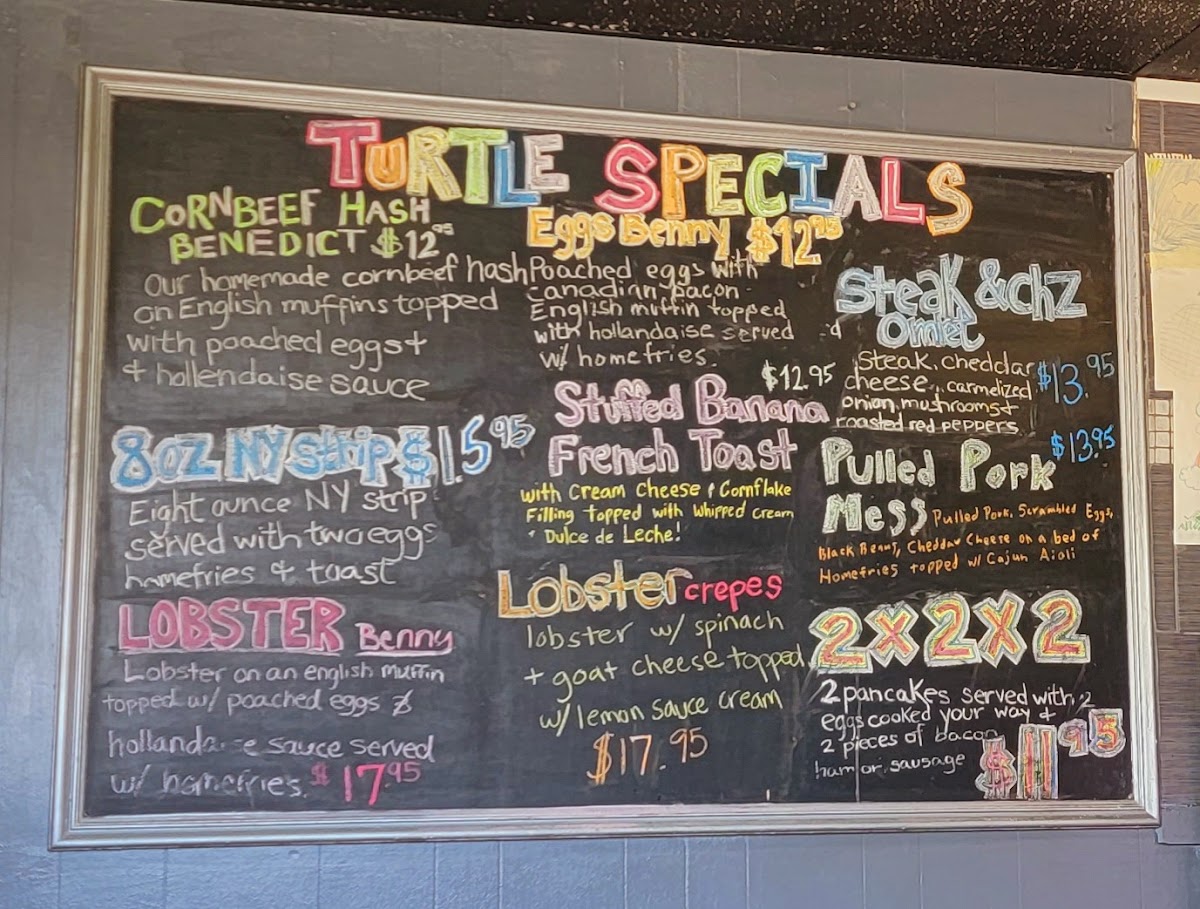 TURTLE SPECIALS
CORNBEEF HASH
BENEDICT $12.95
Our homemade cornbeef hash
on English muffins topped
with poached eggs +
+ hollendaise sauce
8oz NY strip $15.95
Eight ounce NY strip
served with two eggs
homefries + toast
LOBSTER Benny
Lobster on an english muffin
topped w/ poached eggs &
hollandaise sauce served
w/ homefries. $17.95
Eggs Benny $12.95
Poached eggs with
Canadian bacon
English muffin topped
with hollandaise served
w/ homefries.
$12.95
Stuffed Banana
French Toast
with Cream Cheese & Cornflake
Filling topped with Whipped Cream
+ Dulce de Leche!
Lobster crepes
lobster w/ spinach
+ goat cheese topped
w/ lemon sauce cream
$17.95
Steak & chz
Omlet
Steak, cheddar
cheese, carmelized
onion, mushrooms +
roasted red peppers
$13.95
$13.95
Pulled Pork
Mess Pulled Pork, Scrambled Eggs,
Black Beans, Cheddar Cheese on a bed of
Homefries topped w/ Cajun Aioli
2x2x2
2 pancakes served with 2
eggs cooked your way +
2 pieces of bacon
ham or sausage
$11.95